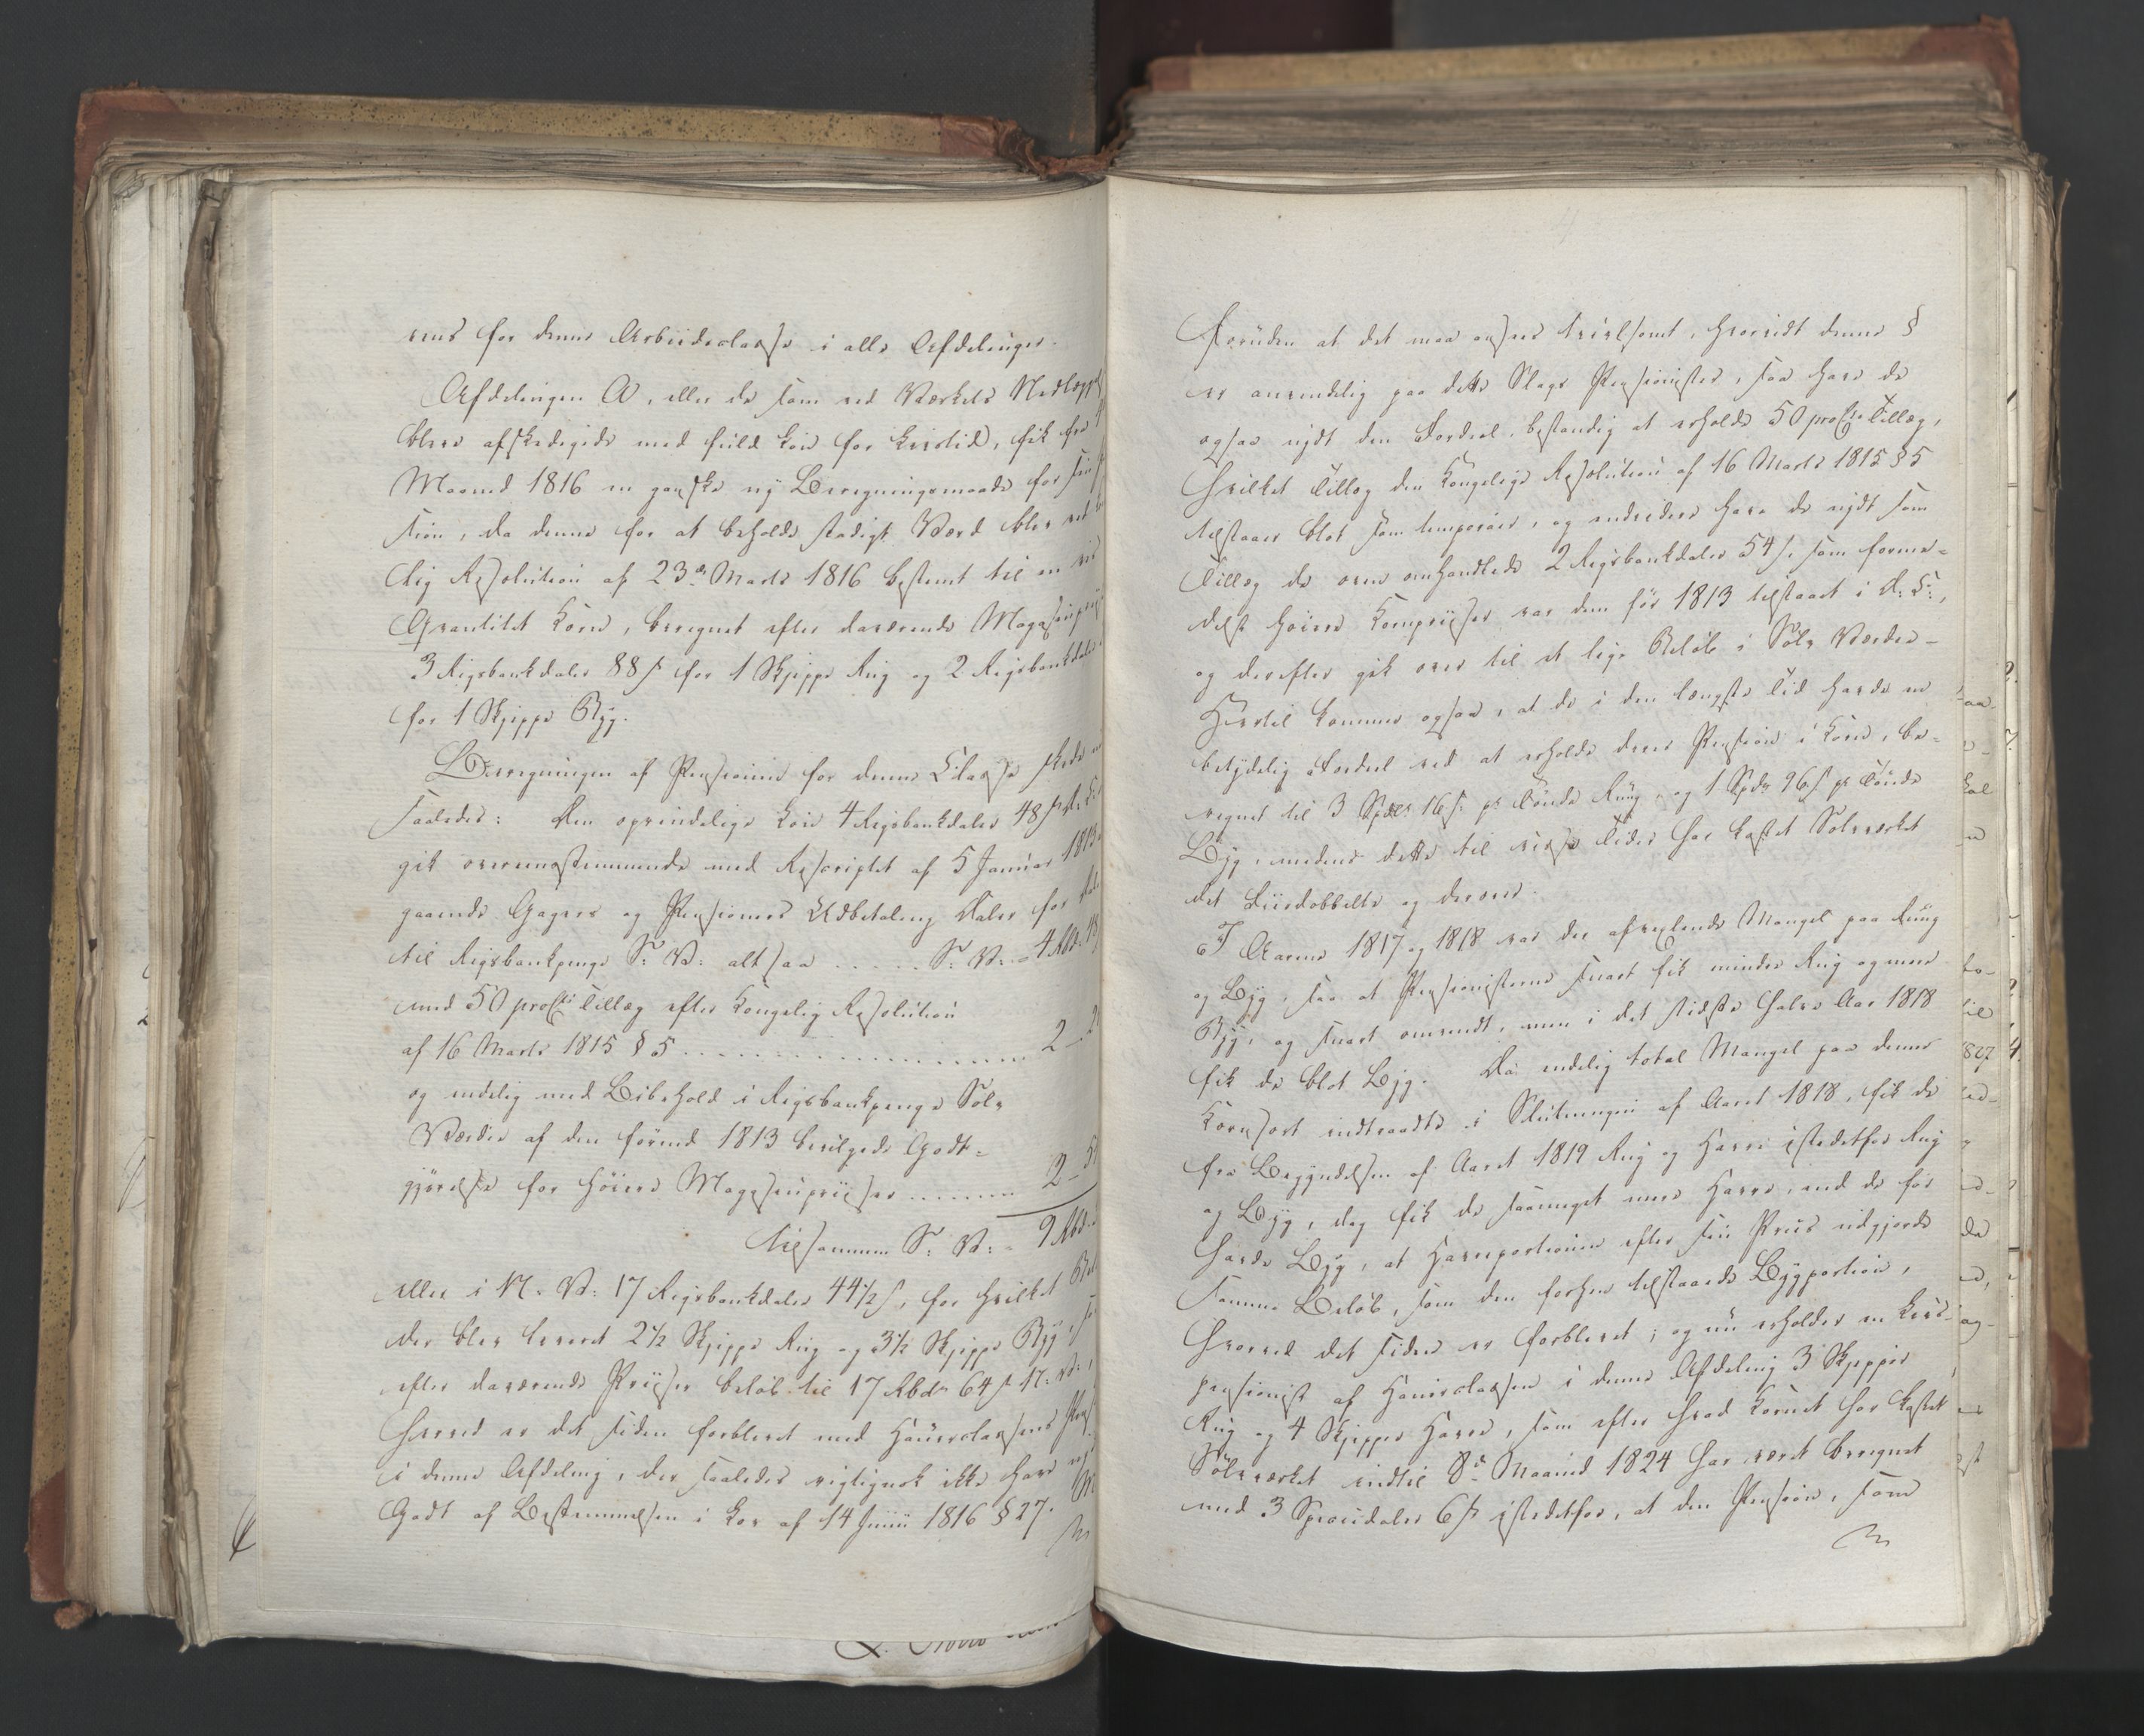 rens for denne Arbeidsclasse i alle Afdelinger.
Afdelingen A, eller de som ved Værkets Nedlægg
bleve afskedigede med fuld Løn for Livstid, fik fra 4
Maaned 1816 en ganske ny Beregningsmaade for sin
sion, da denne for at beholde stadigt Værd blev ved
lig Resolution af 23de Marts 1816 bestemt til en vis
Qvantitet Korn, beregnet efter daværende Magasinpriis
3 Rigsbankdaler 88 s for 1 Skjeppe Rug og 2 Rigsbankdaler
for 1 Skjeppe Byg.
Beregningen af Pensionen for denne Classe skede
saaledes: Den oprindelige Løn 4 Rigsbankdaler 48 s D: C:
gik overeensstemmende med Rescriptet af 5 Januar 1813
gaaende Gagers og Pensioners Udbetaling Daler for Daler
til Rigsbankpenge S: V: altsaa ..... S: V: - 4 Rbd. 48
med 50 proCto Tillæg efter Kongelig Resolution
af 16 Marts 1815 § 5 .................. 2 - 2
og endelig med Bibehold i Rigsbankpenge Sølv
Værdie af den førend 1813 bevilgede Godt-
gjørelse for høiere Magasinpriser ........ 2 - 5
tilsammen S: V: - 9 Rbd.
eller i N. V: 17 Rigsbankdaler 44½ s, for hvilket Bel
der blev leveret 2½ Skjeppe Rug og 3½ Skjeppe Byg, so
efter daværende Priiser beløb til 17 Rbdr 64 s N. V:,
hvorved er det siden forblevet med Hauerclassens Pens
i denne Afdeling, der saaledes rigtignok ikke have
Godt af Bestemmelsen i Lov af 14 Junii 1816 § 27.
Foruden at det maa ansees tvivlsomt, hvorvidt denne §
er anvendelig paa dette Slags Pensionister, saa have de
ogsaa nydt den Fordeel, bestandig at erholde 50 proCto Tillæg,
hvilket Tillæg den Kongelige Resolution af 16 Marts 1815 § 5
tilstaaer blot som temporair, og endvidere have de nydt som
Tillæg de oven omhandlede 2 Rigsbankdaler 54 s, som forme-
delst høiere Kornpriser var dem før 1813 tilstaaet i D: C:,
og derefter gik over til et lige Beløb i Sølv Værdie -
Hertil kommer ogsaa, at de i den længste Tid havde en
betydelig Fordeel ved at erholde deres Pension i Korn, be-
regnet til 3 Spdlr 16 s. pr Tønde Rug, og 1 Spdr 96 s pr Tønde
Byg, medens dette til visse Tider har kostet Sølvværket
det Fiirdobbelte og derover.
I Aarene 1817 og 1818 var der afvexlende Mangel paa Rug
og Byg, saa at Pensionisterne snart fik mindre Rug og mere
Byg, og snart omvendt, men i det sidste halve Aar 1818
fik de blot Byg. Da endelig total Mangel paa denne
Kornsort indtraadte i Slutningen af Aaret 1818, fik de
fra Begyndelsen af Aaret 1819 Rug og Havre istedetfor Rug
og Byg, dog fik de saameget mere Havre, end de før
havde Byg, at Havreportionen efter sin Priis udgjorde
samme Beløb, som den forhen tilstaaede Bygportion,
hvorved det siden er forblevet; og nu erholder en Livs-
pensionist af Hauerclassen i denne Afdeling 3 Skjepper
Rug og 4 Skjepper Havre, som efter hvad Kornet har kostet
Sølvværket indtil 8de Maaned 1824 har været beregnet
med 3 Speciedaler 6 s istedetfor, at den Pension, som